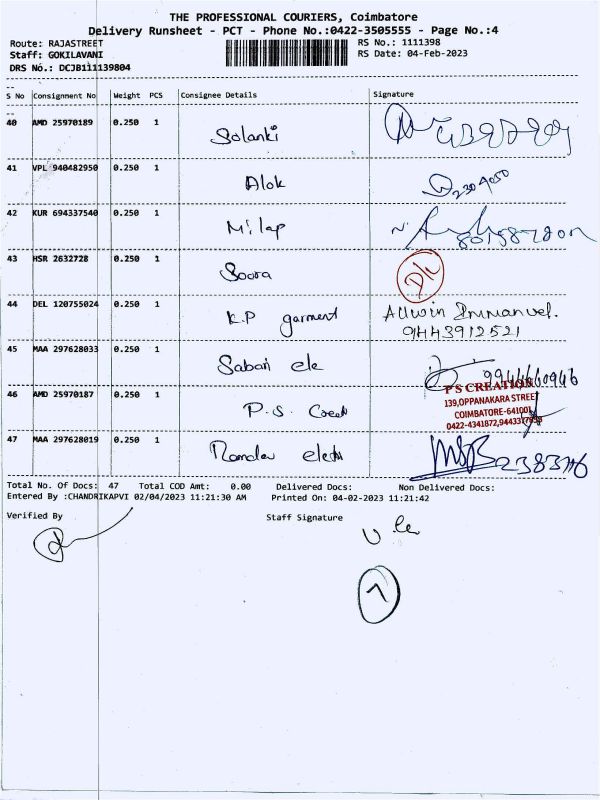 THE PROFESSIONAL COURIERS, Coimbatore
Delivery Runsheet - PCT - Phone No.:0422-3505555 - Page No.:4
Route: RAJASTREET
RS No.: 1111398
Staff: GOKILAVANI
RS Date: 04-Feb-2023
DRS No.: DCJB111139804
S No Consignment No Weight PCS Consignee Details Signature
40 AMD 25970189 0.250 1 Solanki
41 VPL 940482950 0.250 1 Alok
42 KUR 694337540 0.250 1 Milap
43 HSR 2632728 0.250 1 Soora
44 DEL 120755024 0.250 1 K.P garment Allwin Immanuel.
9443912521
45 MAA 297628033 0.250 1 Sabari ele 9944640946
P S CREATION
139,OPPANAKARA STREET
COIMBATORE-641001
46 AMD 25970187 0.250 1 P.S.
0422-4341872,
47 MAA 297628019 0.250 1
Total No. Of Docs: 47 Total COD Amt: 0.00 Delivered Docs: Non Delivered Docs:
Entered By :CHANDRIKAPVI 02/04/2023 11:21:30 AM Printed On: 04-02-2023 11:21:42
Verified By
Staff Signature
7